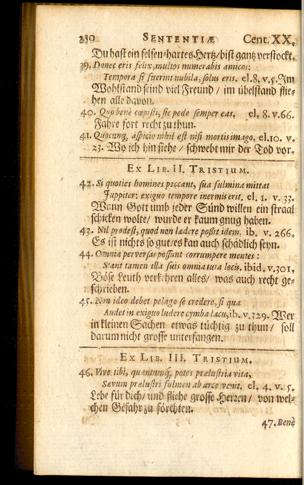 230 SENTENTIÆ Cent. XX.
Du hast ein felsen-hartes Hertz/ bist gantz verstockt.
39. Donec eris felix, multos numerabis amicos:
Tempora si fuerint nubila, solus eris. el. 8. v. 5. Im
Wohlstand seind viel Freund/ im übelstand flie-
hen alle davon.
40. Quò bene cœpisti, sic pede semper eas. el. 8. v. 66.
Fahre fort recht zu thun.
41. Quocunq; aspicio nihil est nisi mortis imago, el. 10. v.
23. Wo ich hin siehe/ schwebt mir der Tod vor.
EX LIB. II. TRISTIUM.
42. Si quoties homines peccant, sua fulmina mittat
Juppiter: exiguo tempore inermis erit, el. 1. v. 33.
Wann Gott umb jeder Sünd willen ein straal
schicken wolte/ wurde er kaum gnug haben.
43. Nil prodest, quod non lædere possit idem. ib. v. 266.
Es ist nichts so gut/ es kan auch schädlich seyn.
44. Omnia perversas possunt corrumpere mentes:
Stant tamen illa suis omnia tuta locis. ibid. v. 301,
Böse Leuth verkehren alles/ was auch recht ge-
schrieben.
45. Non ideo debet pelago se credere, si qua
Audet in exiguo ludere cymba lacu, ib. v. 329. Wer
in kleinen Sachen etwas tüchtig zu thun/ soll
darum nicht grosse unterfangen.
EX LIB. III. TRISTIUM.
46. Vive tibi, quantumq; potes prælustria vita,
Sævum prælustri fulmen ab arce venit, el. 4. v. 5.
Lebe für dich/ und fliehe grosse Herren/ von wel-
chen Gefahr zu förchten.
47. Bene